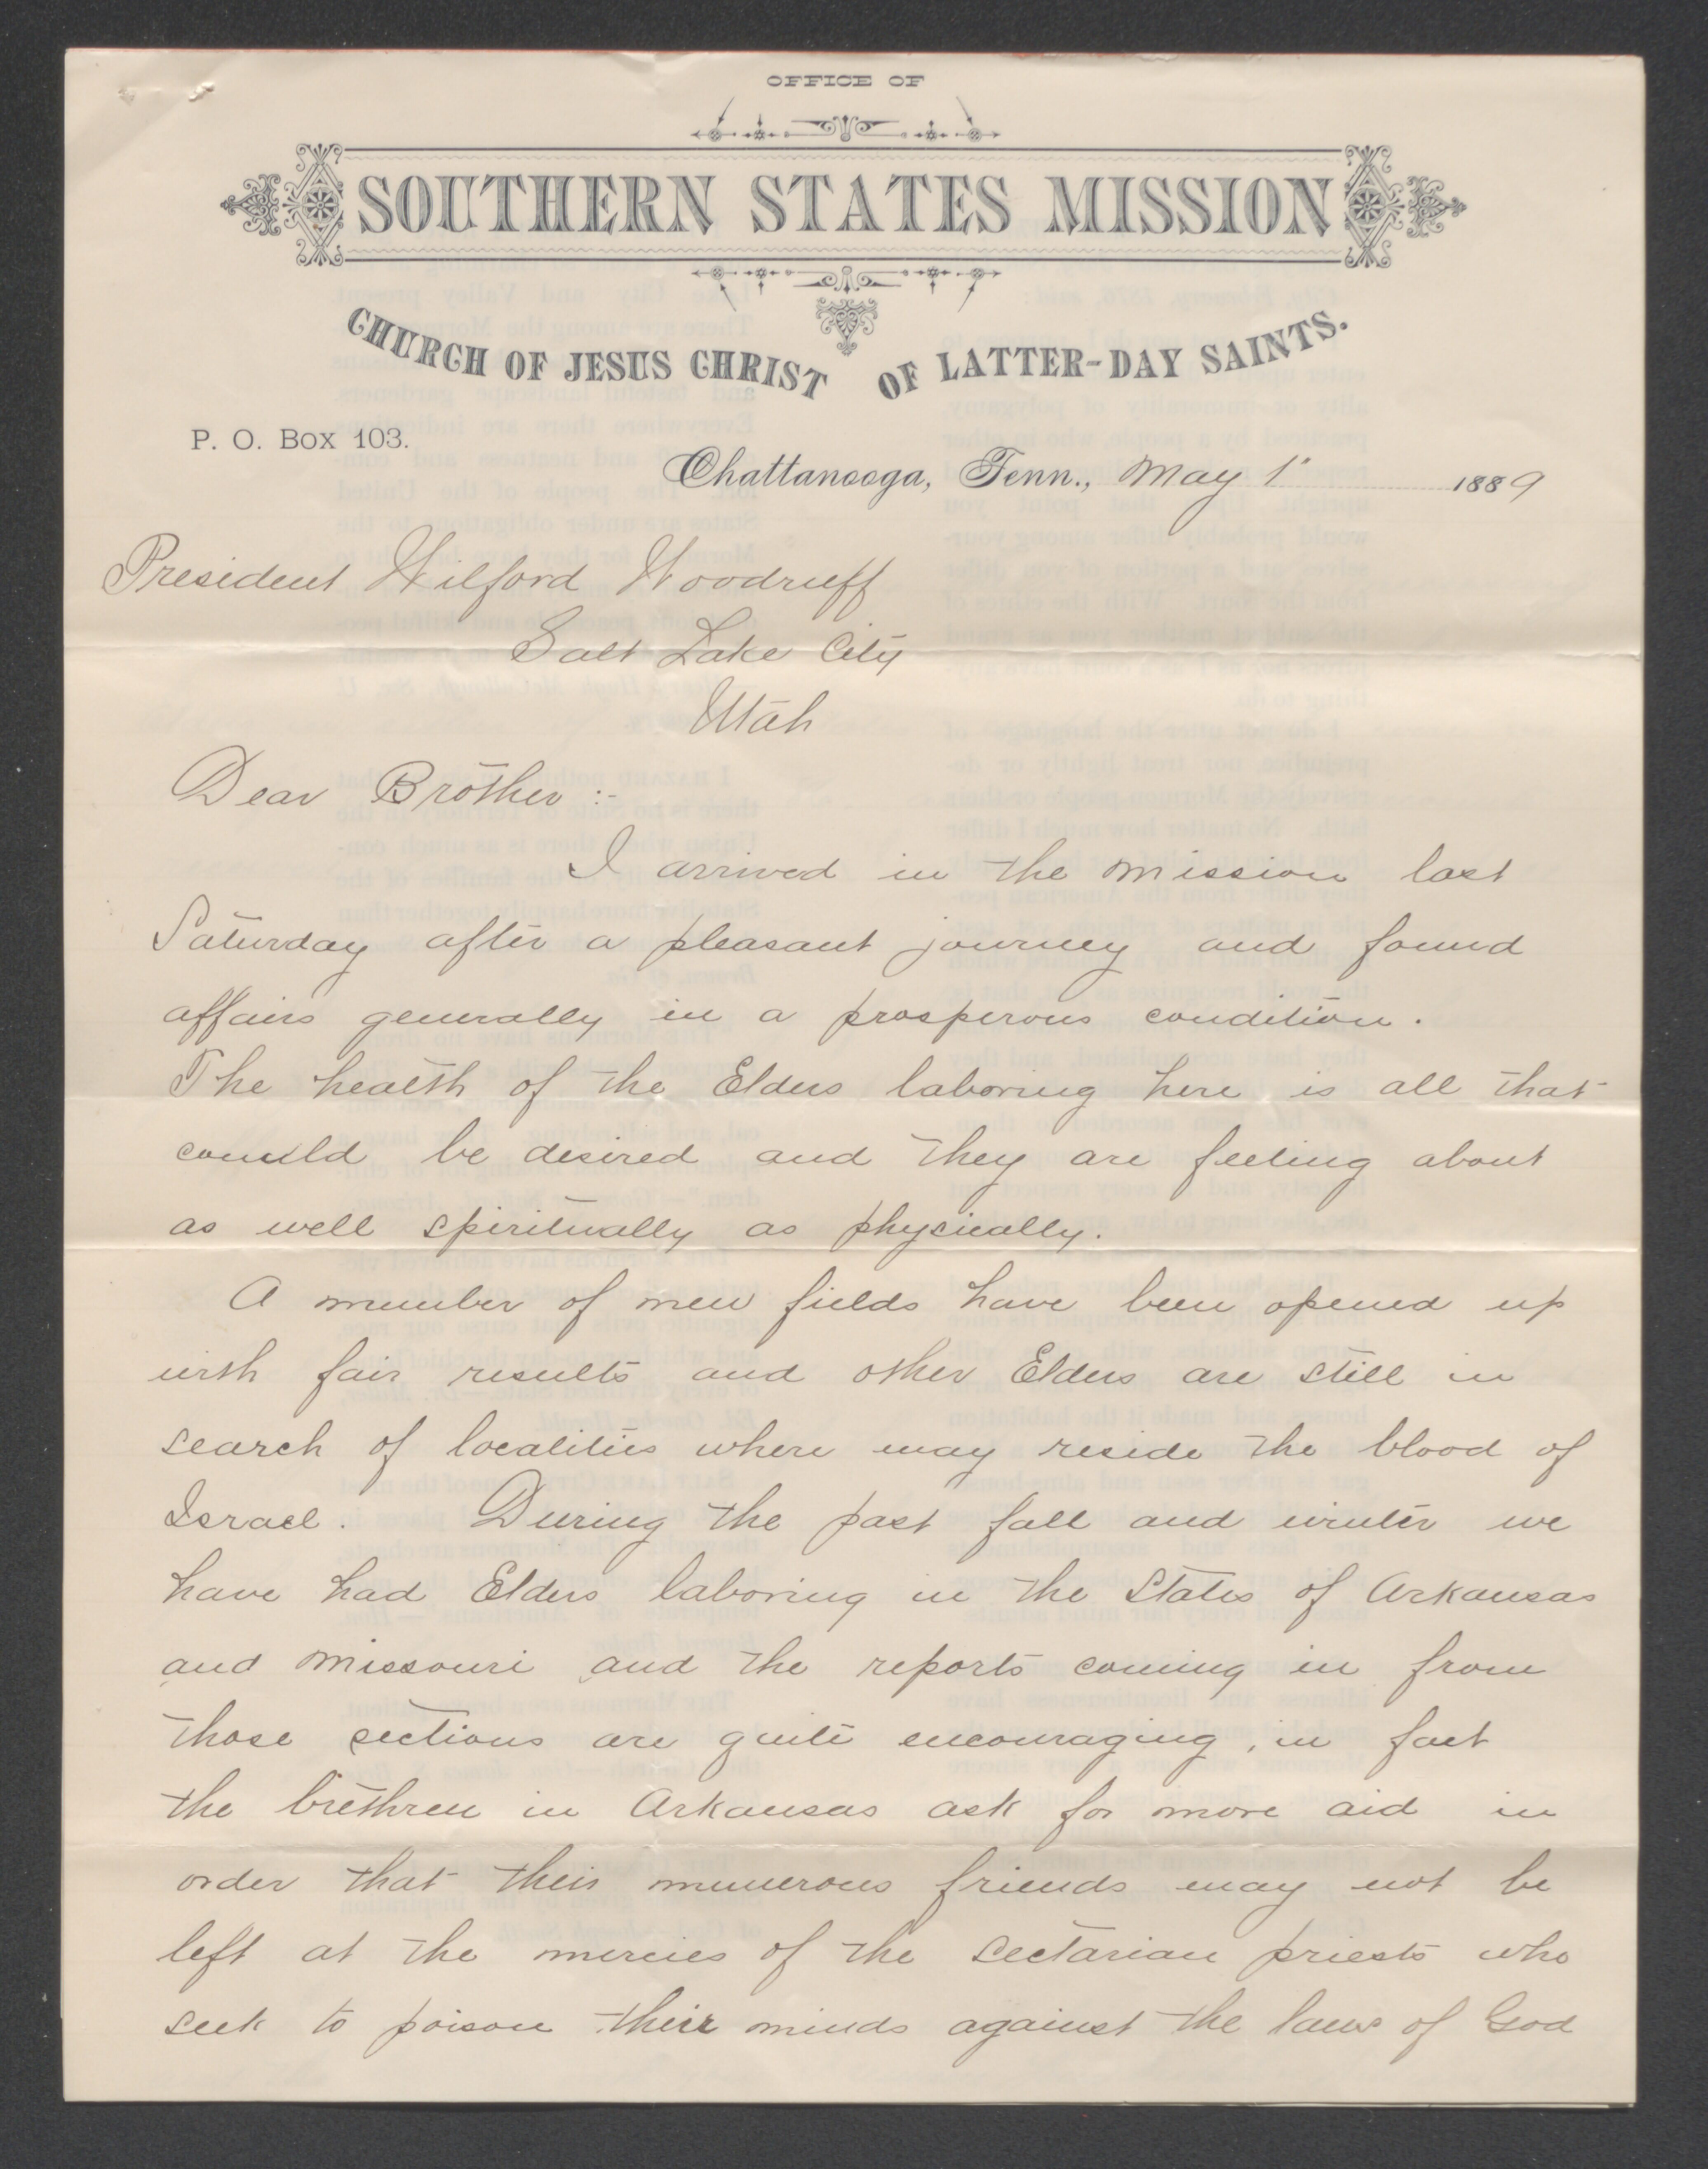 OFFICE OF
SOUTHERN STATES MISSION
CHURCH OF JESUS CHRIST OF LATTER-DAY SAINTS.
P. O. Box 103.
Chattanooga, Tenn., May 1" 1889
President Wilford Woodruff
Salt Lake City
Utah
Dear Brother :-
I arrived in the mission last
Saturday after a pleasant journey and found
affairs generally in a prosperous condition.
The health of the Elders laboring here is all that
could be desired and they are feeling about
as well spiritually as physically.
A number of new fields have been opened up
with fair results and other Elders are still in
search of localities where may reside the blood of
Israel. During the past fall and winter we
have had Elders laboring in the States of Arkansas
and Missouri and the reports coming in from
those sections are quite encouraging, in fact
the brethren in Arkansas ask for more aid in
order that their numerous friends may not be
left at the mercies of the sectarian priests who
seek to poison their minds against the laws of God